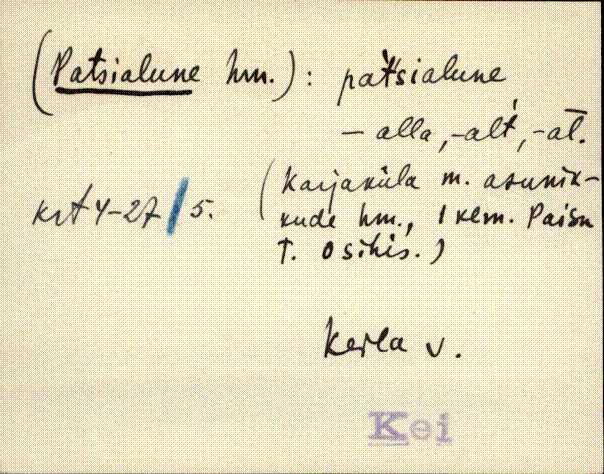 (Patsialune hm.): pat́sialune
– alla, -alt́, -al̄.
krt 4-27/5.
(Karjaküla m. asunik-
kude hm., 1 kem. Paisu
T. Osihis.)
Keila v.
Kei